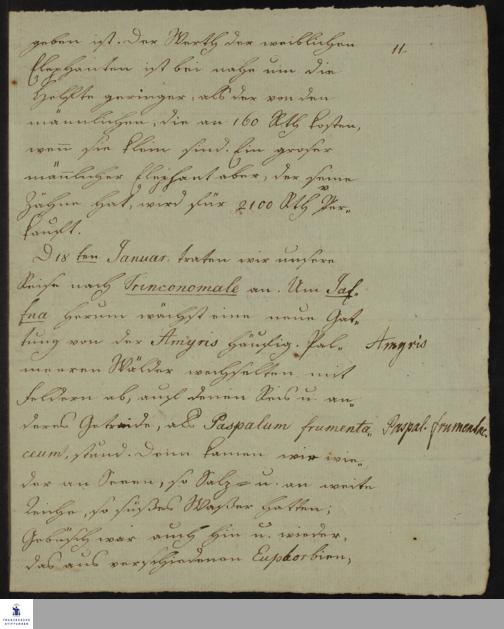 11.
geben ist. Der Werth der weiblichen
Elephanten ist bei nahe um die
Helfte geringer, als der von den
mannlichen, die an 160 Rth kosten,
wen̄ sie klein sind. Ein groser
män̄licher Elephant aber, der seine
Zähne hat, wird für 2100 Rth Ver-
kauft.
D 18 ten Januar. traten wir unsere
Reise nach Trinconomale an. Um Jaf-
fna herum wächst eine neue Gat-
tung von der Amyris häufig. Pal-
Amyris
meeren Wälder wechselten mit
Feldern ab, auf denen Reis u. an-
deres Getreide, als Paspalum frumenta-
Paspal. frumentac.
ceum, stund. Denn kamen wir wie-
der an Seeen, so Salz= u. an weite
Teiche, so süßes Waßer hatten;
Gebüsch war auch hin u. wieder,
das aus verschiedenen Euphorbien,
FRANCKESCHE
STIFTUNGEN